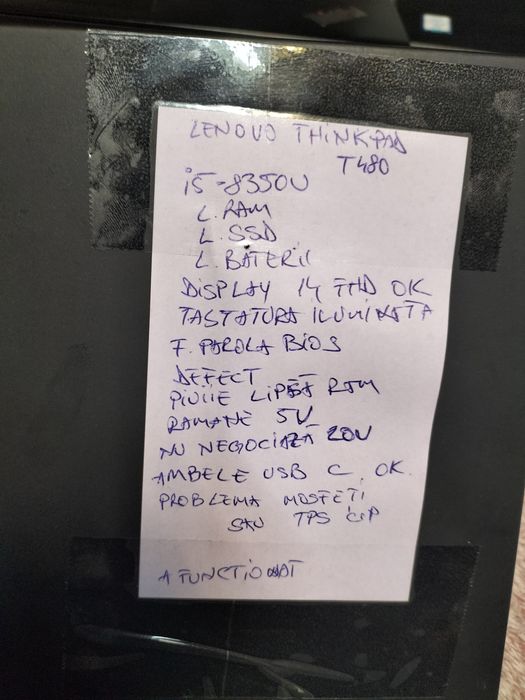 LENOVO THINKPAD
T480
i5-8350U
L. RAM
L. SSD
L. BATERII
DISPLAY 14 FHD OK
TASTATURA ILUMINATA
F. PAROLA BIOS
DEFECT
PIUIE LIPSA RAM
RAMANE 5V
NU NEGOCIAZA 20V
AMBELE USB C OK.
PROBLEMA MOSFETI
SAU TPS CIP
A FUNCTIONAT